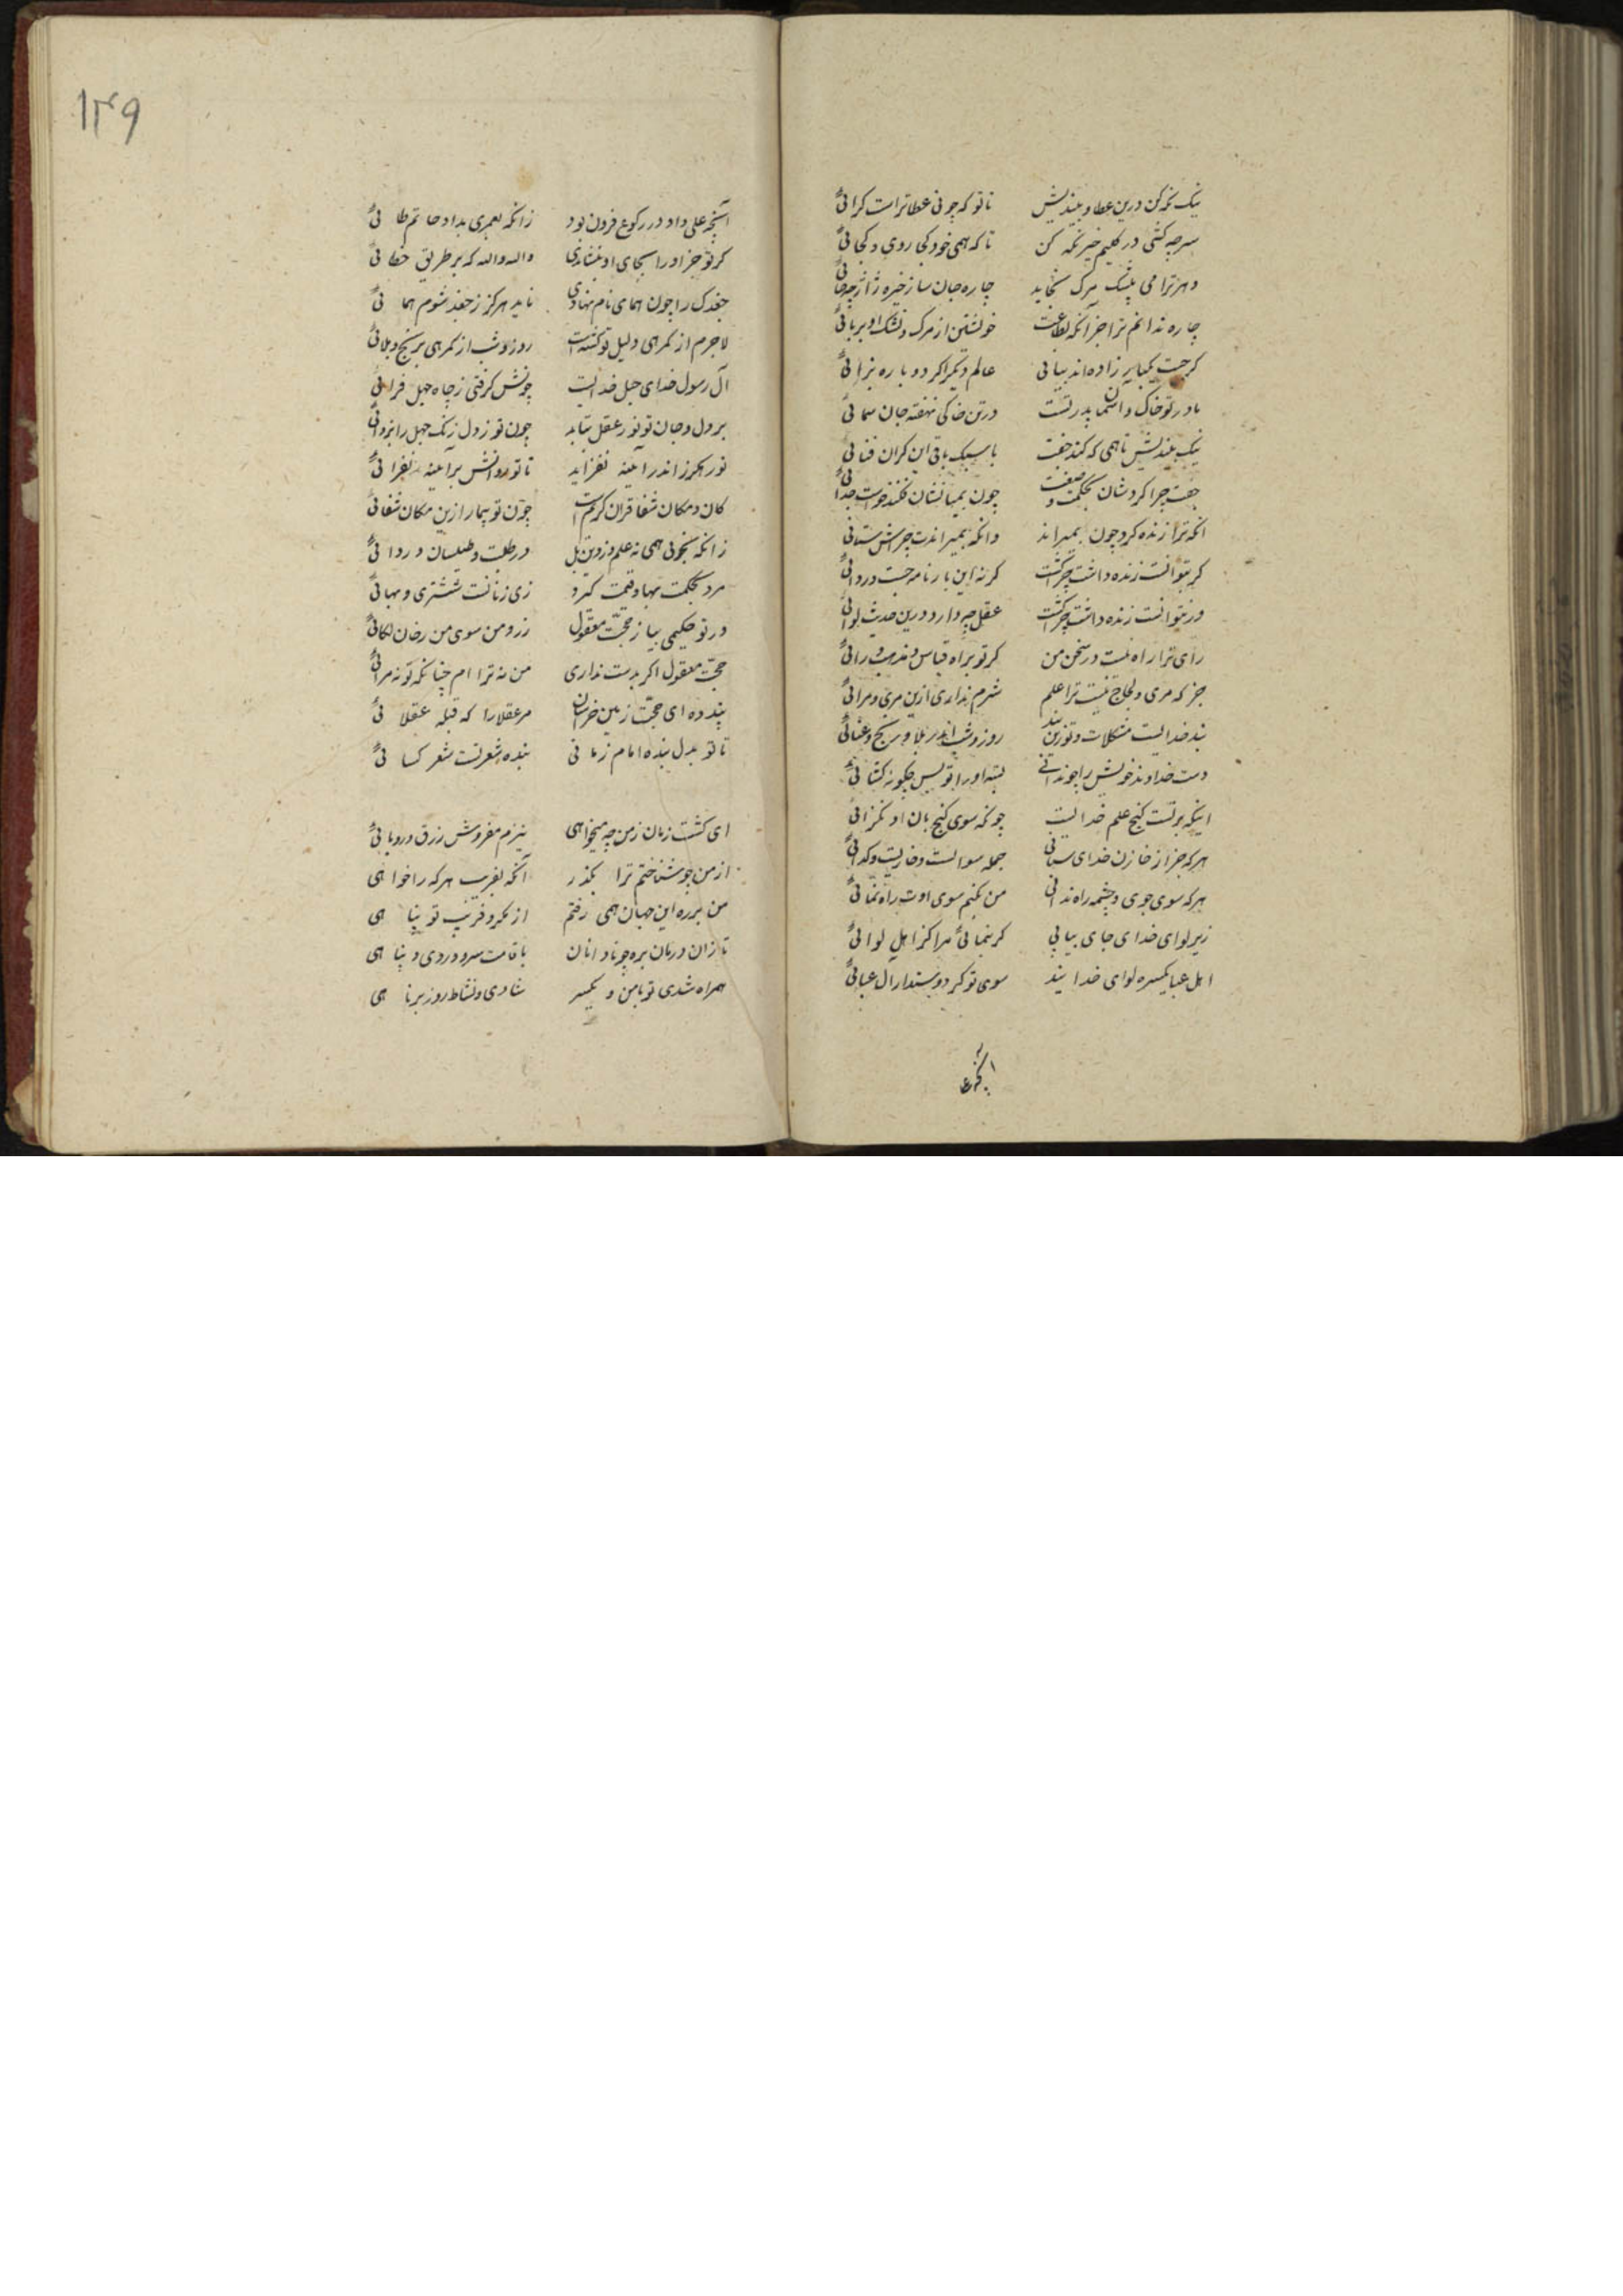 نیک نکه کن درین عطا و بیندیش تا تو که جونی عطا تراست کرائی
سر چه کشی در کلیم خیز نکه کن تا که همی خود کجا روی و کجائی
دهر ترا می بپشک مرک بخاید چاره جان ساز خیره ژاژ چه خائی
چاره ندانم ترا جز انکه بطاعت خویشتن از مرک و پشک او بربائی
کر جست یکبار زاده اند بیابی عالم دیکر اکر دوباره بزائی
مادر تو خاک و اسمان پدر تست در تن خاکی نهفته جان سمائی
نیک بیندیش تا همی که کند جفت با سبک باقی این کران فنائی
جفت چرا کردشان بحکمت و صنعت چون بمیانشان فکند خواست جدائی
انکه ترا زنده کرد چون بمیراند وانکه بمیراندت چراش ستائی
کر بتوانست زنده داشت چرا کشت کر نه این بارنامه جست و روائی
ور نتوانست زنده داشت چرا کشت عقل چه دارد درین حدیث لوائی
رای ترا راه نیست در سخن من کر تو براه قیاس و مذهب رائی
جز که مری و لجاج نیست ترا علم شرم نداری ازین مری و مرائی
بند خدایست مشکلات و تو زین بند روز و شب اندر بلا و رنج و عنائی
دست خداوند خویش را چو ندانی بسته او را تو پس چکونه کشائی
اینکه بر تست کنج علم خدایست چونکه سوی کنج بان او نکرائی
هر که جز از خازن خدای ستانی جمله سؤالست و خاریست و کدائی
هر که سوی جوی و چشمه راه ندانی من نکنم سوی اوت راه نمائی
زیر لوای خدای جای بیابی کر بنمائی مرا کز اهل لوائی
اهل عبا یکسره لوای خدایند سوی تو کر دوستدار آل عبائی
آنچه علی داد در رکوع فزون بود زانکه بعمری بداد حاتم طائی
کر تو جز او را بجای او بنشاندی والله والله که بر طریق خطائی
جغدک را چون همای نام نهادی ناید هرکز ز جغد شوم همائی
لاجرم از کمرهی دلیل تو کشته است روز و شب از کمرهی برنج و بلائی
آل رسول خدای حبل خدایست چونش کرفتی ز چاه جهل فرائی
بر دل و جان تو نور عقل بتابد چون تو ز دل زنک جهل را بزدائی
نور هکرز اندر آینه نفزاید تا تو روانش بر آینه نفزائی
کان و مکان شفا قران کریم است چون تو بیمار ازین مکان شفائی
زانکه بجوئی همی نه علم و نه دین بل در طلب و طیلسان و ردائی
مرد بحکمت بها و قیمت کیرد زی زنانست ششتری و بهائی
ور تو حکیمی بیار حجت معقول زرو من سوی من رخان لکائی
حجت معقول اکر بدست نداری من نه ترا ام چنانکه تو نه مرائی
پند ده ای حجت زمین خراسان مر عقلا را که قبله عقلائی
تا تو بدل بنده امام زمانی بنده اشعر تست شعر کسائی
ای کشت زمان ز من چه میخواهی نیزم مفروش زرق و روبائی
از من چو شناختم ترا بکذر آنکه بفریب هر که را خواهی
من بر ره این جهان همی رفتم از مکر و فریب تو بپناهی
تازان و دمان بره چو نادانان با قامت سرو و روی دیباهی
همراه شدی تو با من و یکسر شادی و نشاط روز برناهی